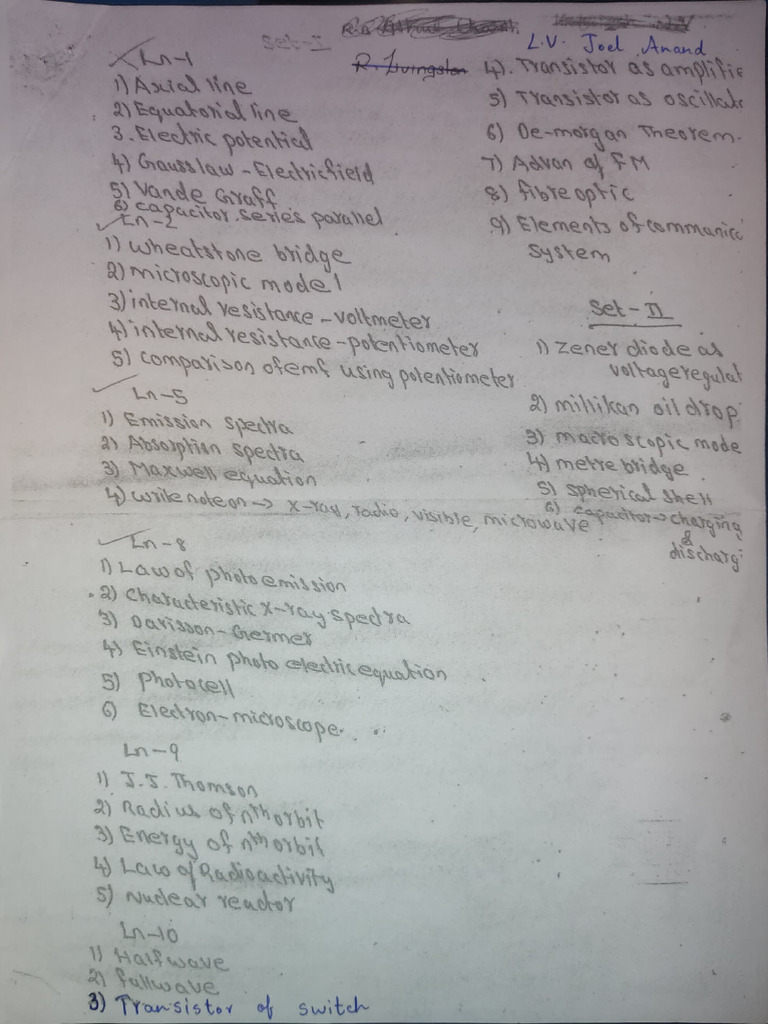 Set-I
L.V. Joel Anand
R. Livingston
Ln-1
1) Axial line
2) Equatorial line
3. Electric potential
4) Gauss law - Electric field
5) Vande Graff
6) capacitor series parallel
Ln-2
1) wheatstone bridge
2) microscopic model
3) internal resistance - voltmeter
4) internal resistance - potentiometer
5) comparison of emf using potentiometer
Ln-5
1) Emission spectra
2) Absorption spectra
3) Maxwell equation
4) write note on → x-ray, radio, visible, microwave
Ln-8
1) Law of photo emission
2) Characteristic x-ray spectra
3) Davisson-Germer
4) Einstein photo electric equation
5) photocell
6) Electron-microscope.
Ln-9
1) J.J. Thomson
2) Radius of nth orbit
3) Energy of nth orbit
4) Law of Radioactivity
5) nuclear reactor
Ln-10
1) Half wave
2) full wave
3) Transistor of switch
4). Transistor as amplifie
5) Transistor as oscillato
6) De-morgan Theorem.
7) Advan of FM
8) fibre optic
9) Elements of communic
system
Set-II
1) Zener diode as
voltage regulat
2) millikan oil drop
3) macroscopic mode
4) metre bridge
5) spherical shell
6) capacitor → charging
&
dischargi